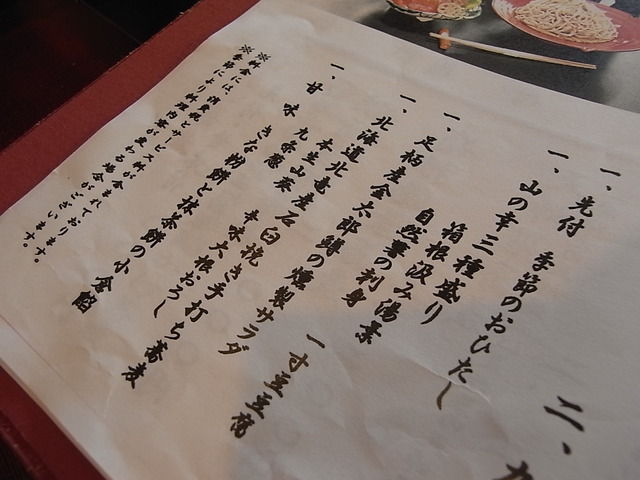 一、先付 季節のおひたし
一、山の幸三種盛り
箱根汲み湯葉
自然薯の刺身
一寸豆豆腐
一、足柄産金太郎鱒の燻製サラダ
一、北海道北竜産石臼挽き手打ち蕎麦
本生山葵 辛味大根おろし
九条葱
甘味 きな粉餅と抹茶餅の小倉餡
※料金には、消費税とサービス料が含まれております。
※季節により料理内容が変わる場合がございます。
二、